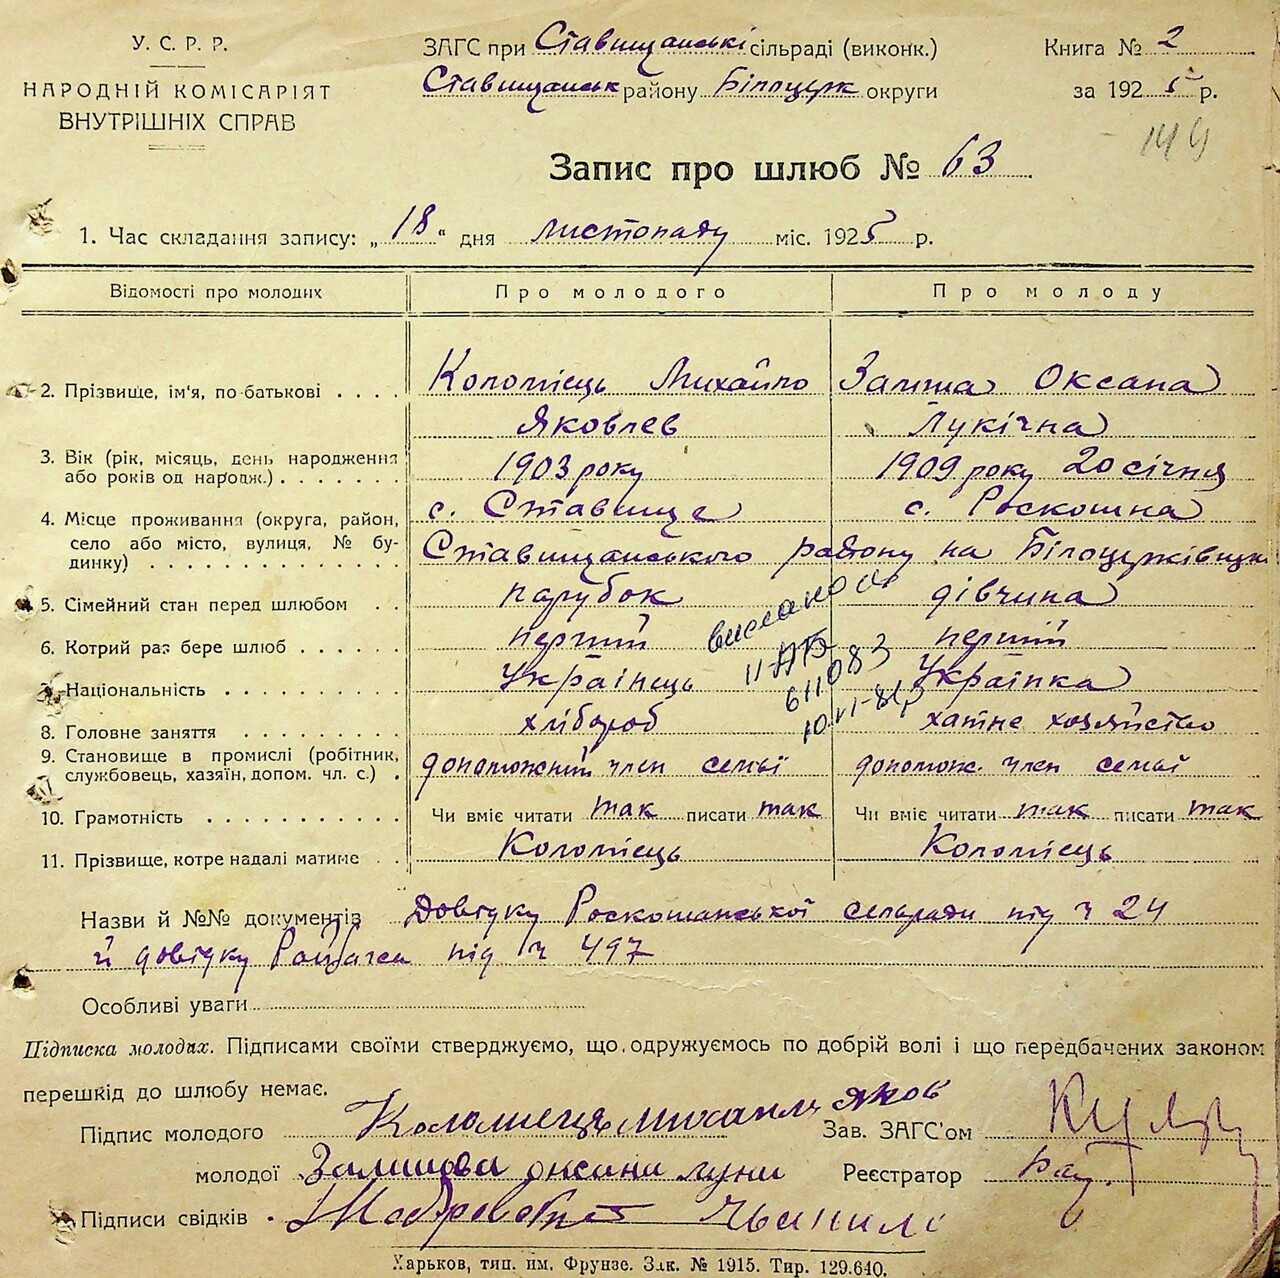 У. С. Р. Р.
НАРОДНІЙ КОМІСАРІЯТ
ВНУТРІШНІХ СПРАВ
ЗАГС при Ставищанські сільраді (виконк.)
Ставищанськ району Білоцерк округи
Книга № 2
за 1925 р.
149
Запис про шлюб № 63
1. Час складання запису: „18“ дня листопаду міс. 1925 р.
Відомості про молодих
Про молодого
Про молоду
2. Прізвище, ім'я, по-батькові . . . .
Коломієць Михайло
Яковлев
Замша Оксана
Лукічна
3. Вік (рік, місяць, день народження
або років од народж.) . . . . . . .
1903 року
1909 року 20 січня
4. Місце проживання (округа, район,
село або місто, вулиця, № бу-
динку) . . . . . . . . . . . . . .
с. Ставище
с. Роскошна
Ставищанського району на Білоцерківщи
5. Сімейний стан перед шлюбом . .
парубок
дівчина
6. Котрий раз бере шлюб . . . . . .
перший
перший
7. Національність . . . . . . . . . .
Українець
Українка
8. Головне заняття . . . . . . . . .
хлібороб
хатне хозяйство
9. Становище в промислі (робітник,
службовець, хазяїн, допом. чл. с.) .
допоможний член семьї
допомож. член семьї
10. Грамотність . . . . . . . . . . .
Чи вміє читати так писати так
Чи вміє читати так писати так
11. Прізвище, котре надалі матиме . .
Коломієць
Коломієць
II-АБ
611083
10.VI-81р
Назви й №№ документів Довідку Роскошанської сельради під ч 24
й довідку Райзагса під ч 497
Особливі уваги
Підписка молодих. Підписами своїми стверджуємо, що одружуємось по добрій волі і що передбачених законом
перешкід до шлюбу немає.
Підпис молодого Коломиець михаил яков
Зав. ЗАГС'ом
молодої Замшова оксана луки
Реєстратор
Підписи свідків
Харьков, тип. им. Фрунзе. Зак. № 1915. Тир. 129.640.